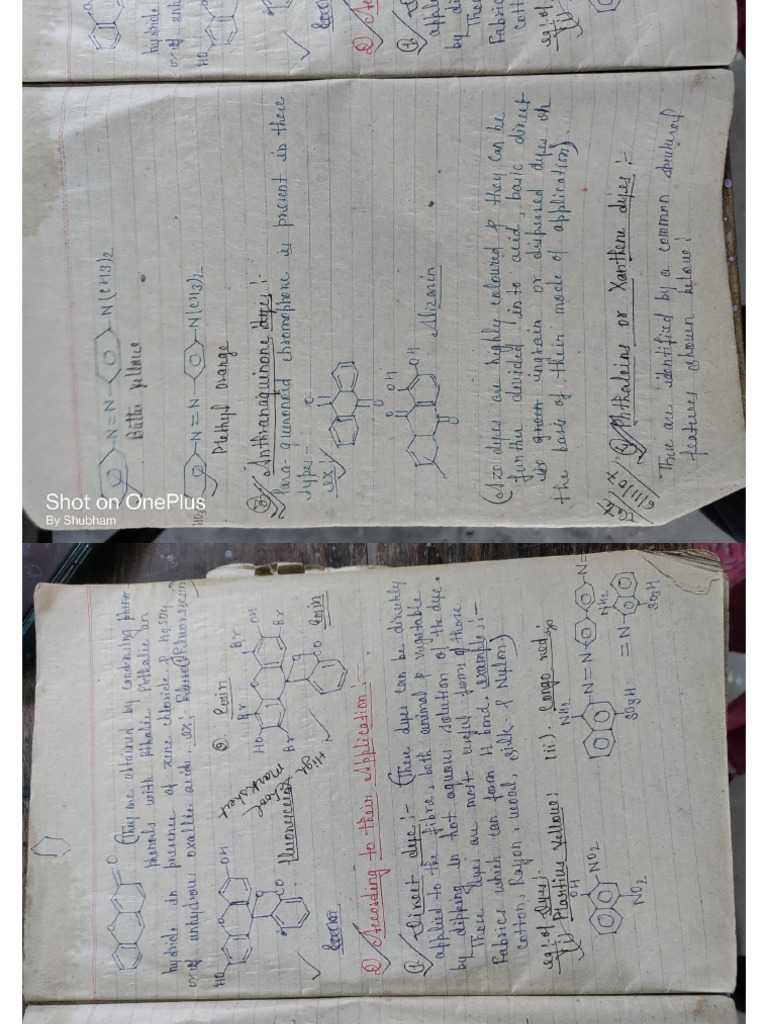 Shot on OnePlus
By Shubham
N = N
N(CH3)2
Butter yellow
HO3
N = N
N(CH3)2
Methyl Orange
③ Anthranaquinone dyes :-
Para-quenonoid chromophone is present in these
types -
ex
O
O
O
OH
OH
Alizarin
(Azo dyes are highly coloured & they can be
further devided into acid, basic direct
ingrain or dispersed dyes on
the basis of their mode of application)
6/11/02
④ Phthaleins or Xanthene dyes :-
These are identified by a common structured
features shown below:
O
(They are obtained by condensing
phenols with Pthalic Pthalic an
hydride in presence of zinc chloride & H2SO4
or of anhydrous oxallic acid. ex;
② Eosin
HO
OH
CO
fluorescein
HO
OH
Br
Br
Br
Br
CO
Eosin
High
② According to their Application :-
① Direct dye :- (These dyes can be directly
applied to the fibre, both animal & vegetable
by dipping in hot aqueous solution of the dye.
These dyes are most useful form of those
Fabrics which can form H bond. example :-
Cotton, Rayon, wool, silk & Nylon)
eg: of Dyes:-
(i) Martius Yellow:
(ii). Congo red :
OH
NO2
NO2
NH2
N = N
N =
SO3H
NH2
= N
SO3H